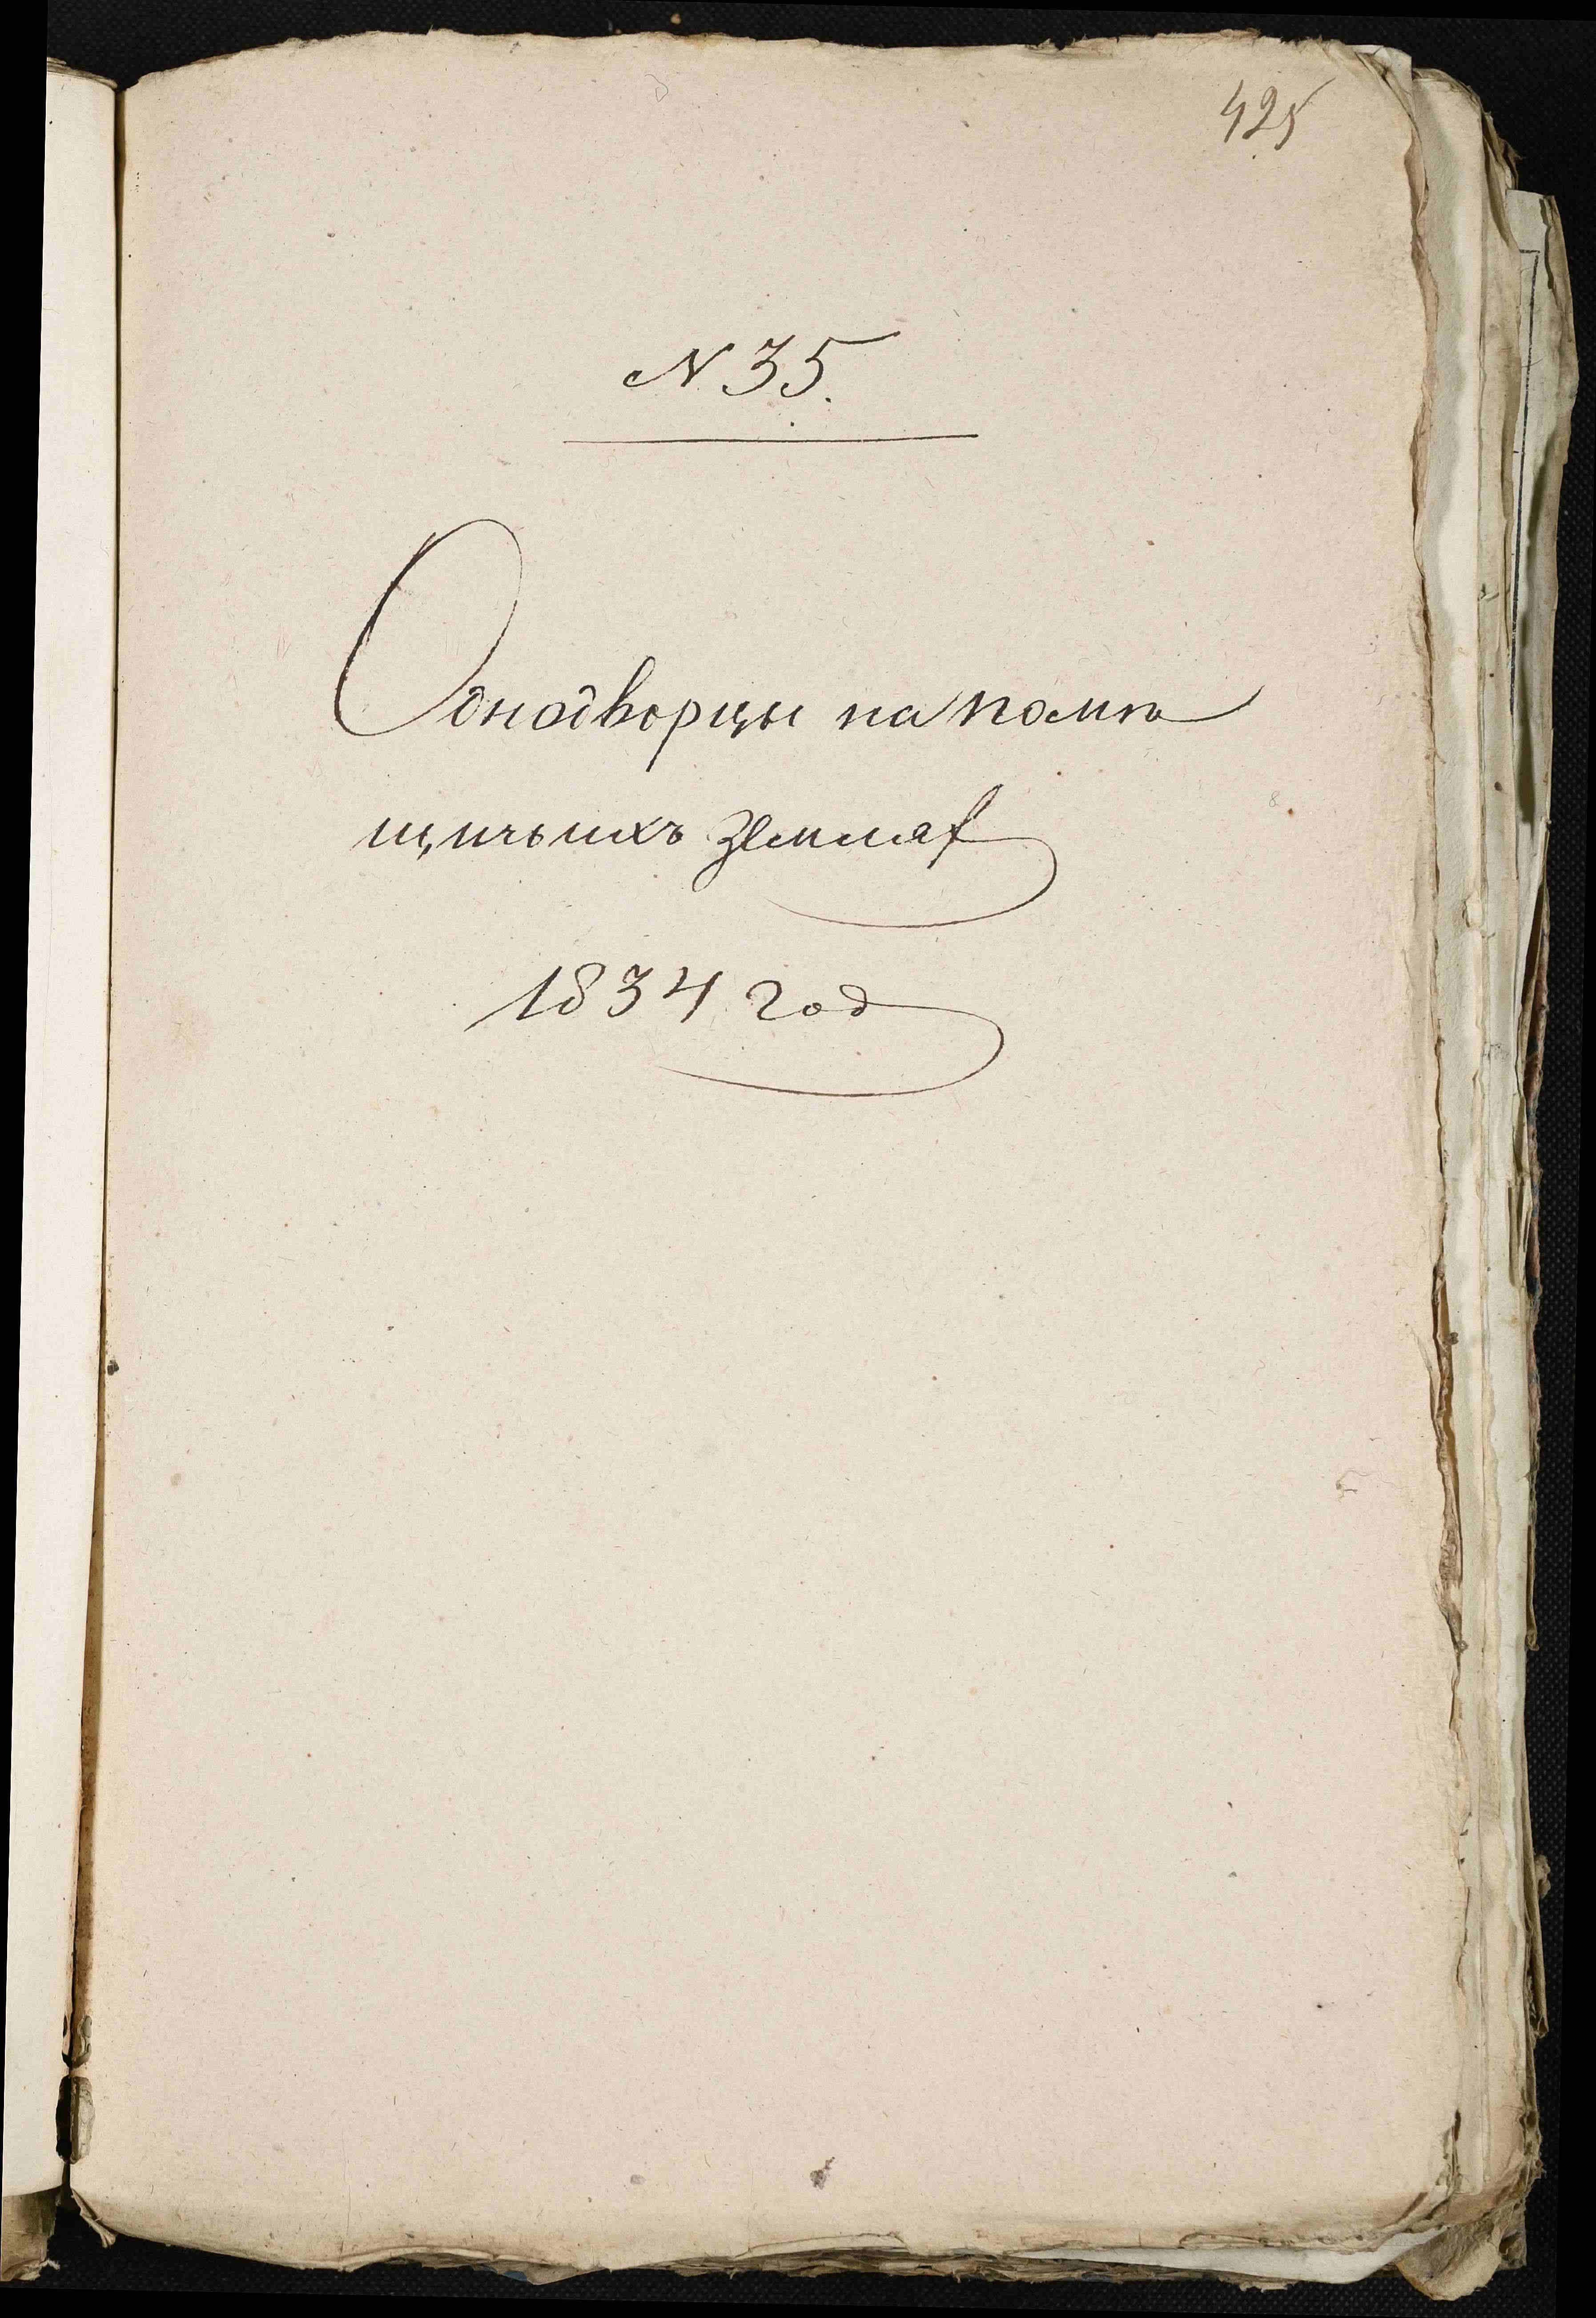 425
N 35.
Однодворцы на помѣ
щичьихъ землях
1834 год